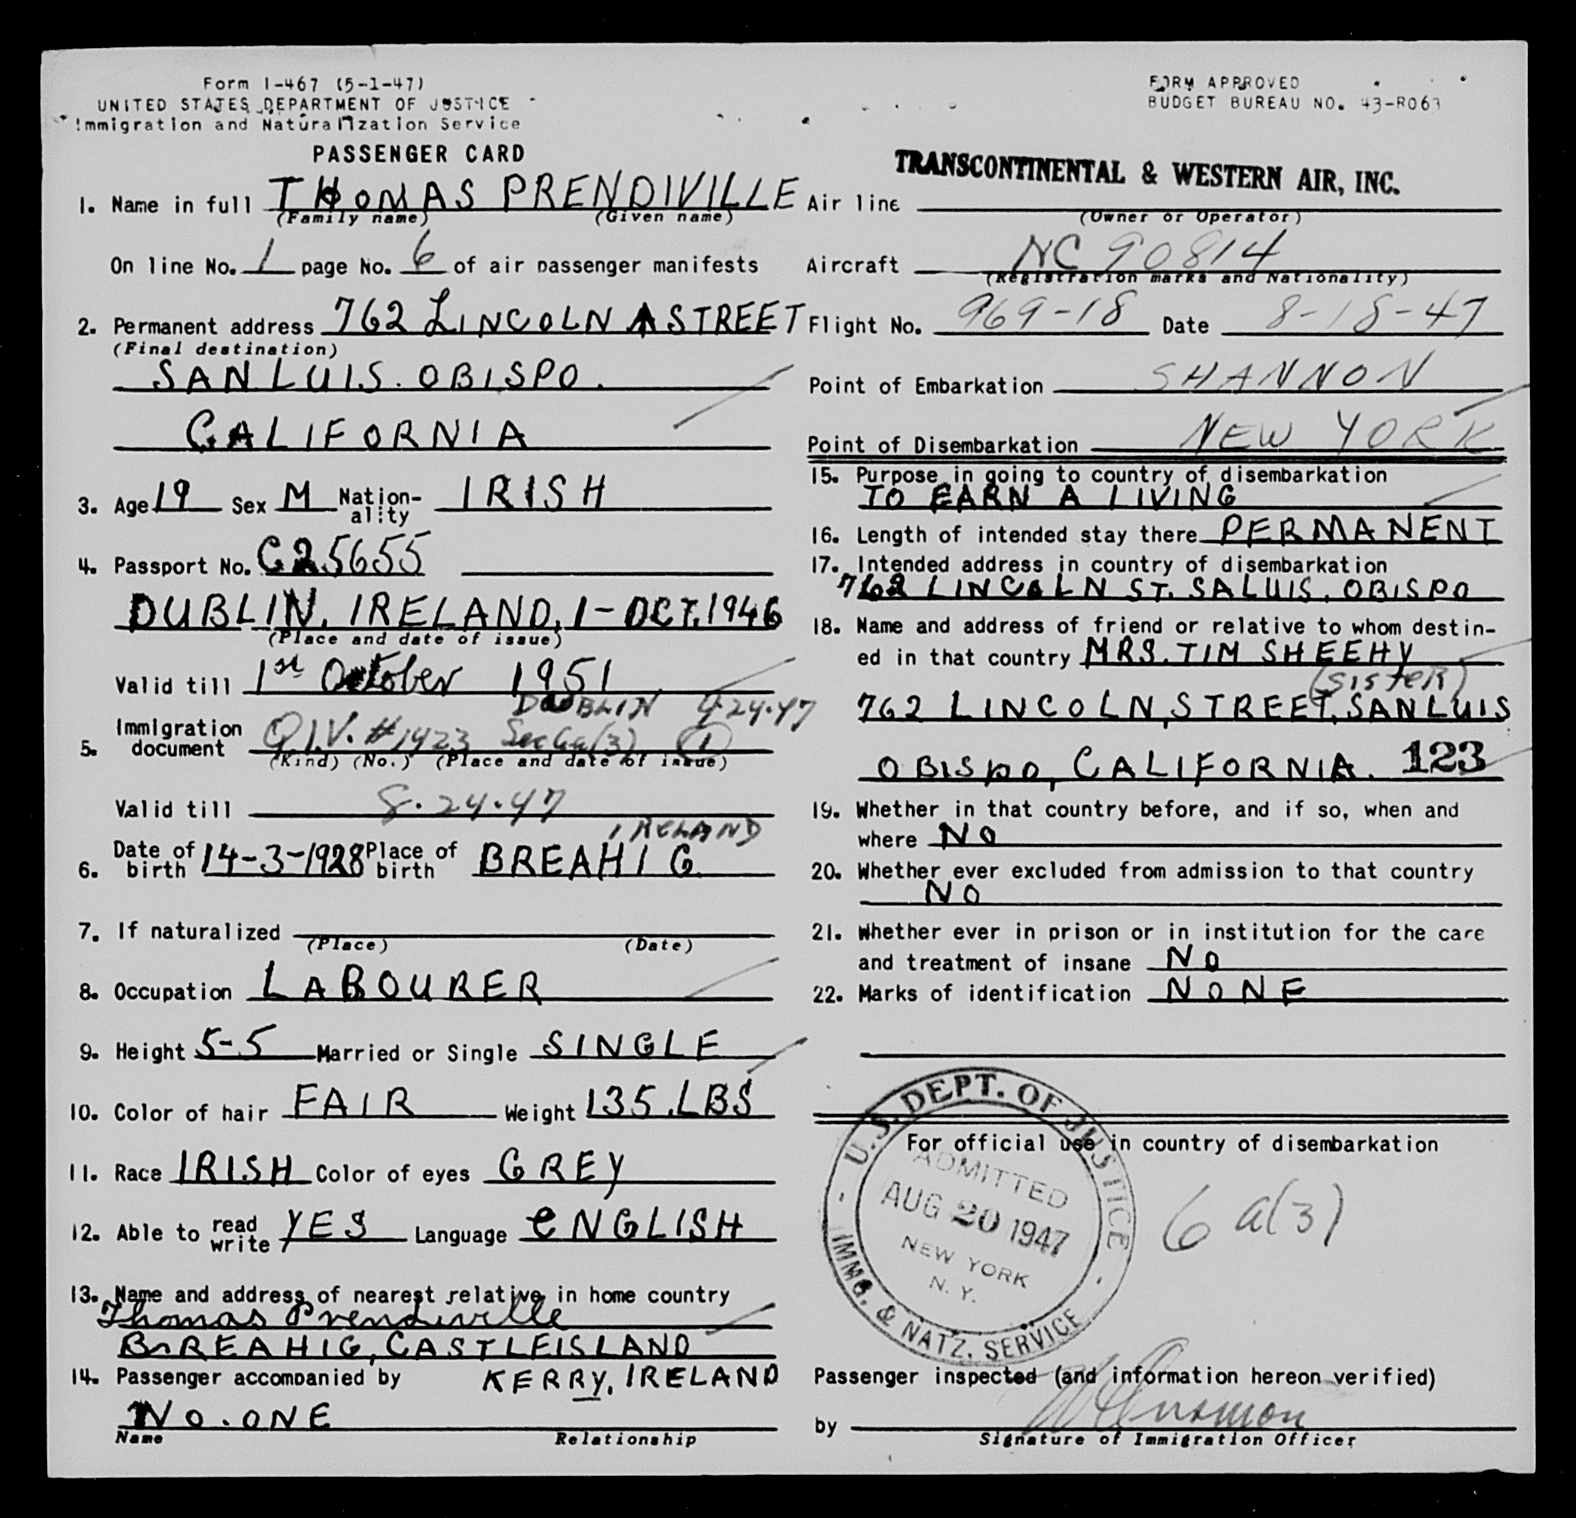 Form I-467 (5-1-47)
UNITED STATES DEPARTMENT OF JUSTICE
Immigration and Naturalization Service
PASSENGER CARD
1. Name in full THOMAS PRENDIVILLE
(Family name) (Given name)
On line No. 1 page No. 6 of air passenger manifests
2. Permanent address 762 LINCOLN STREET
(Final destination)
SAN LUIS. OBISPO.
CALIFORNIA
3. Age 19 Sex M Nation-ality IRISH
4. Passport No. C25655
DUBLIN, IRELAND, 1-OCT. 1946
(Place and date of issue)
Valid till 1st October 1951
DUBLIN 4-24-47
5. Immigration document Q.I.V. #1423 Sec 6a(3) (1)
(Kind) (No.) (Place and date of issue)
Valid till 8-24-47
IRELAND
6. Date of birth 14-3-1928 Place of birth BREAHIG
7. If naturalized
(Place) (Date)
8. Occupation LABOURER
9. Height 5-5 Married or Single SINGLE
10. Color of hair FAIR Weight 135.LBS
11. Race IRISH Color of eyes GREY
12. Able to read write YES Language ENGLISH
13. Name and address of nearest relative in home country
Thomas Prendiville
BREAHIG, CASTLEISLAND
KERRY, IRELAND
14. Passenger accompanied by
NO. ONE
Name Relationship
FORM APPROVED
BUDGET BUREAU NO. 43-R063
TRANSCONTINENTAL & WESTERN AIR, INC.
Air line
(Owner or Operator)
Aircraft NC 90814
(Registration marks and Nationality)
Flight No. 969-18 Date 8-18-47
Point of Embarkation SHANNON
Point of Disembarkation NEW YORK
15. Purpose in going to country of disembarkation
TO EARN A LIVING
16. Length of intended stay there PERMANENT
17. Intended address in country of disembarkation
762 LINCOLN ST. SALUIS. OBISPO
18. Name and address of friend or relative to whom destin-
ed in that country MRS. TIM SHEEHY
(SISTER)
762 LINCOLN, STREET, SAN LUIS
OBISPO, CALIFORNIA. 123
19. Whether in that country before, and if so, when and
where NO
20. Whether ever excluded from admission to that country
NO
21. Whether ever in prison or in institution for the care
and treatment of insane NO
22. Marks of identification NONE
For official use in country of disembarkation
U.S. DEPT. OF JUSTICE
ADMITTED
AUG 20 1947
NEW YORK
N. Y.
IMMG. & NATZ. SERVICE
6a(3)
Passenger inspected (and information hereon verified)
by
Signature of Immigration Officer